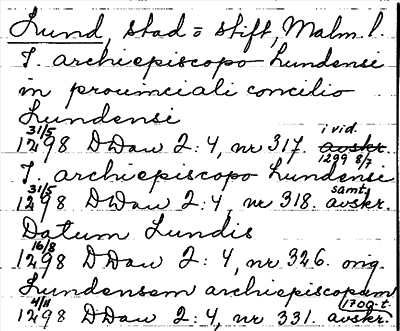 Lund, stad = stift, Malm. l.
J. archiepiscopo Lundensi
in prouinciali concilio
Lundensi
31/5 i vid.
1298 DDan 2:4, nr 317. avskr.
1299 8/7
J. archiepiscopo Lundensi
31/5 samt.
1298 DDan 2:4, nr 318. avskr.
Datum Lundis
16/8
1298 DDan 2:4, nr 326. orig.
Lundensem archiepiscopum
4/11 1700-t.
1298 DDan 2:4, nr 331. avskr.